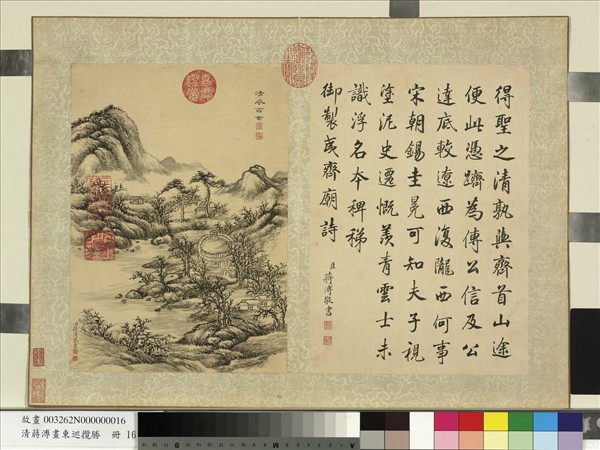 得聖之清孰與齊首山途
便此憑躋為傳公信及公
達底較遼西復隴西何事
宋朝錫圭冕可知夫子視
塗泥史遷慨羨青雲士未
識浮名夲稗稊
御製夷齊廟詩
臣蔣溥敬書
清風百世
故畫 003262N000000016
清蔣溥畫東巡攬勝 冊 16